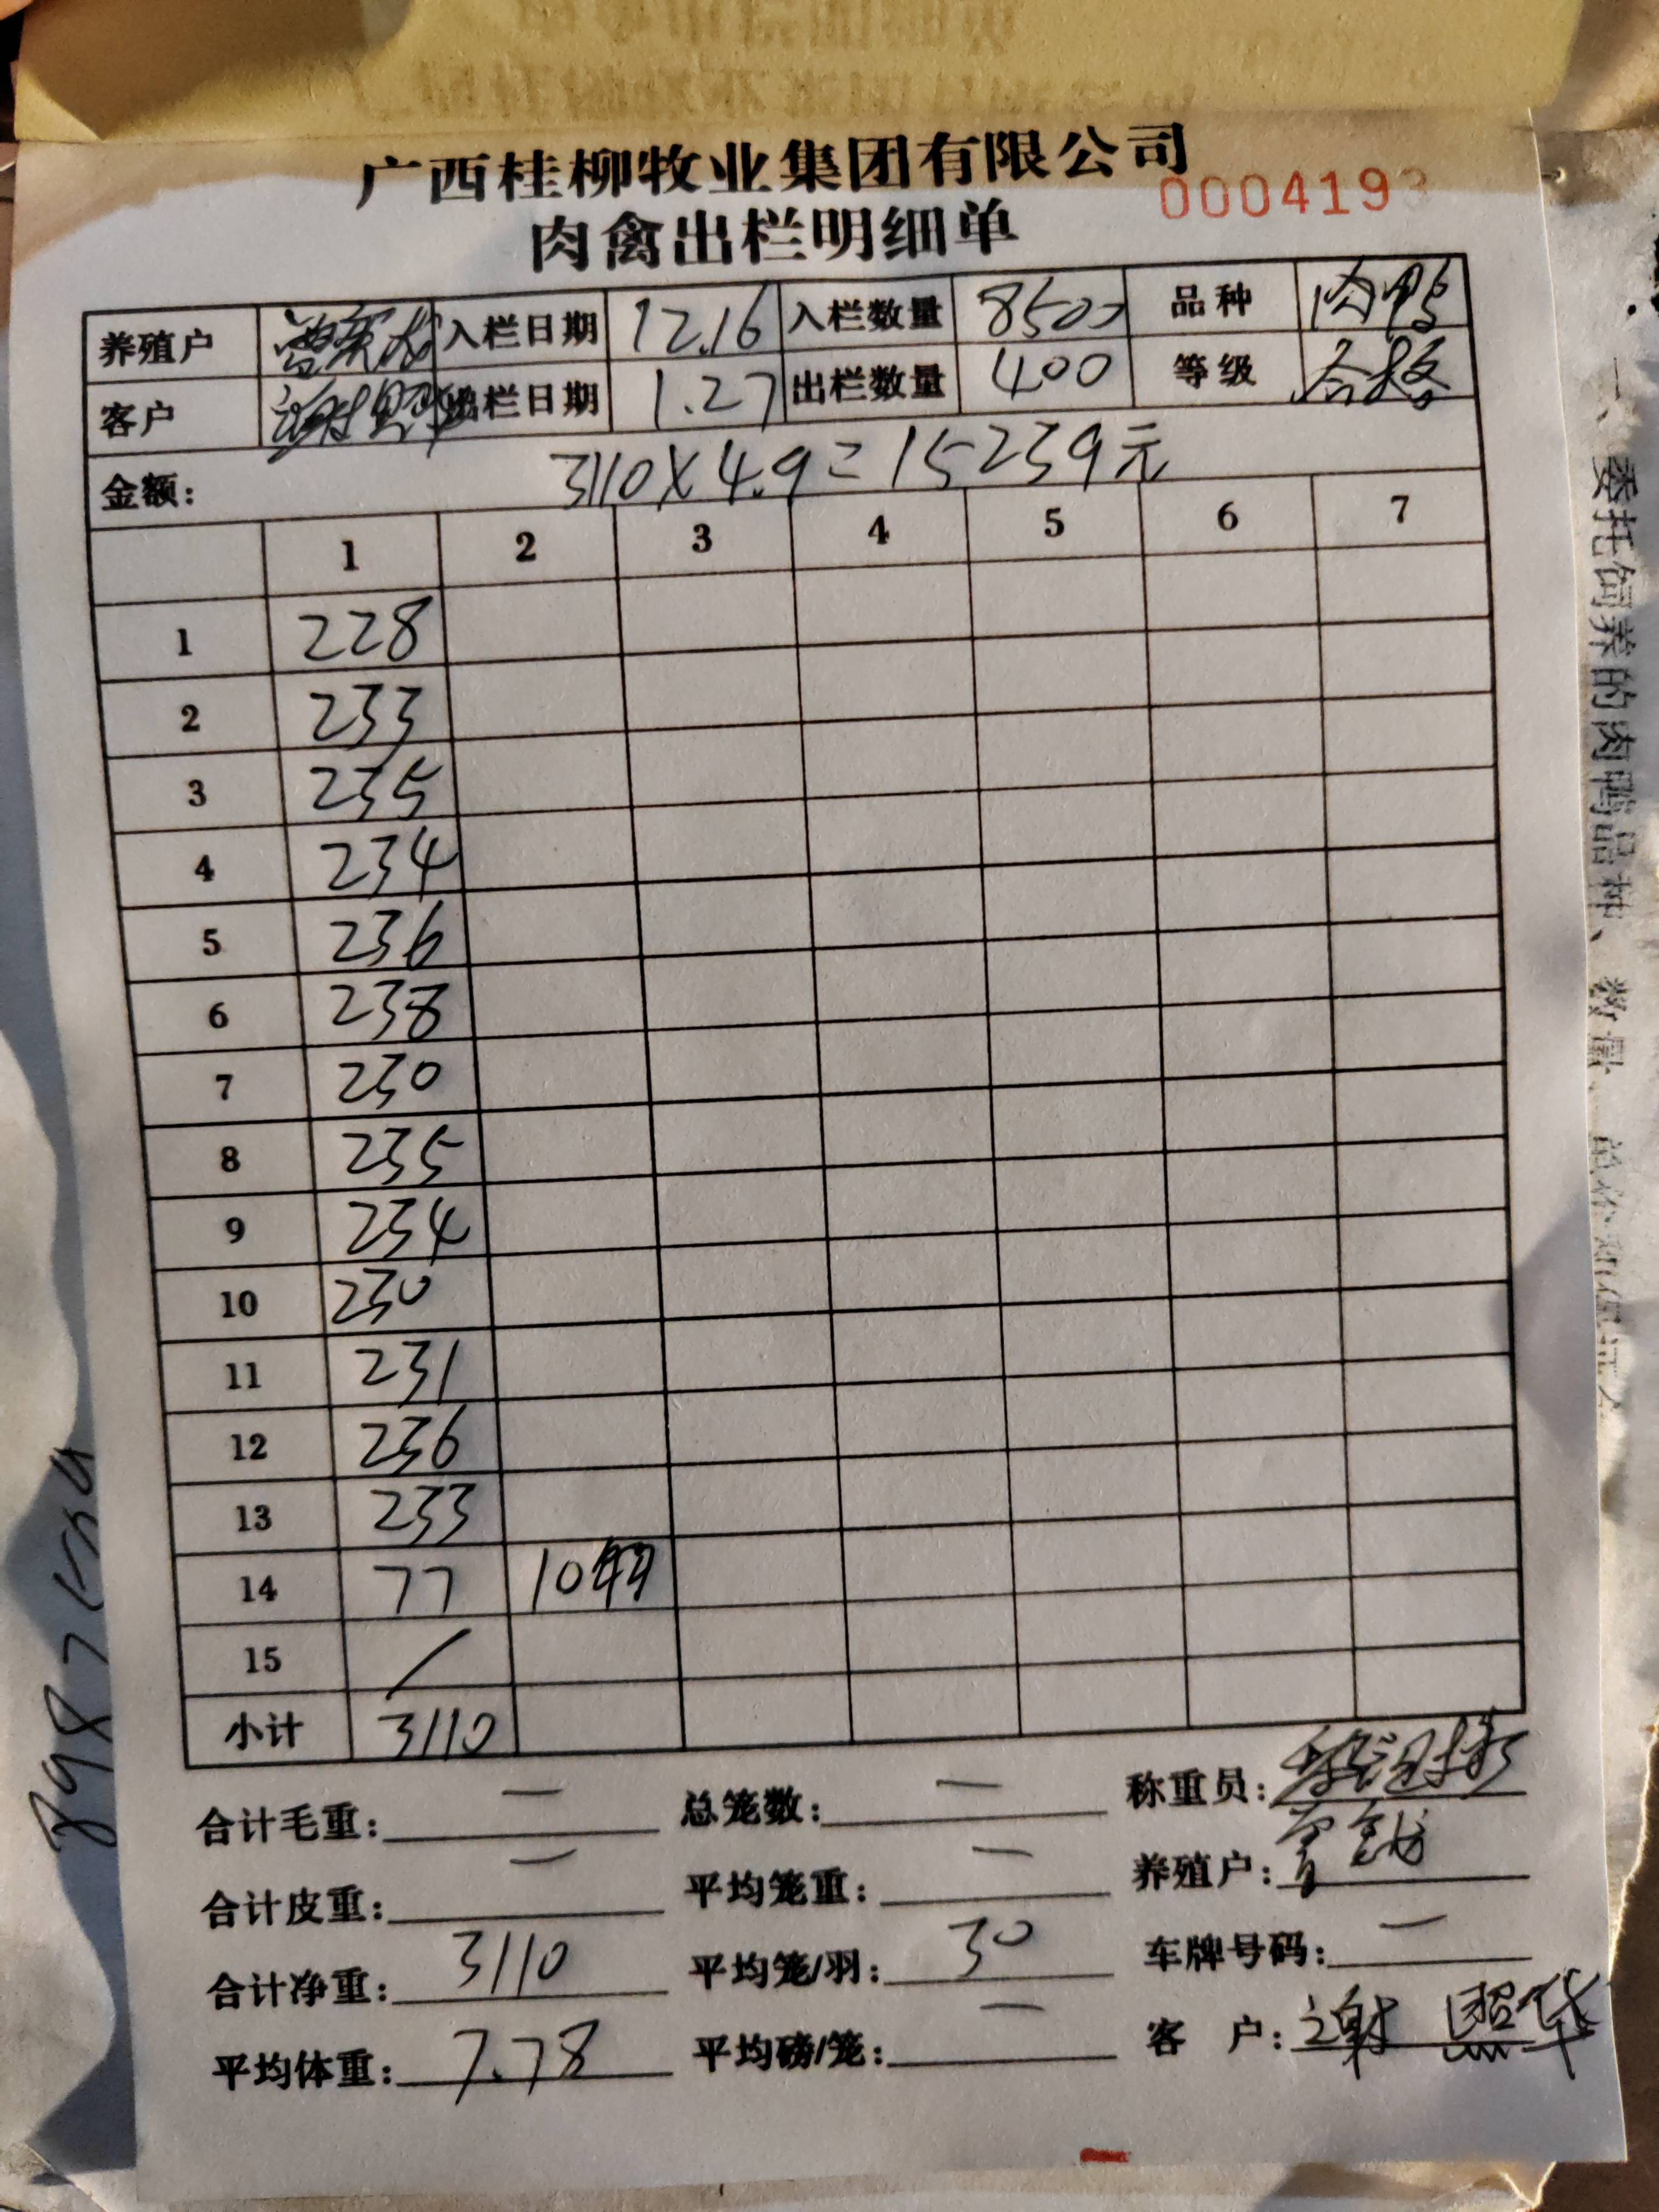 广西桂柳牧业集团有限公司
000419
肉禽出栏明细单
养殖户 入栏日期 12.16 入栏数量 8500 品种 肉鸭
客户 谢照华 出栏日期 1.27 出栏数量 400 等级 合格
金额: 3110×4.9=15239元
1 2 3 4 5 6 7
1 228
2 233
3 235
4 234
5 236
6 238
7 230
8 235
9 234
10 230
11 231
12 236
13 233
14 77 10
15 /
小计 3110
合计毛重: — 总笼数: — 称重员:
合计皮重: — 平均笼重: — 养殖户:
合计净重: 3110 平均笼/羽: 30 车牌号码: —
平均体重: 7.78 平均磅/笼: — 客 户: 谢照华
一、委托饲养的肉鸭品种、数量、